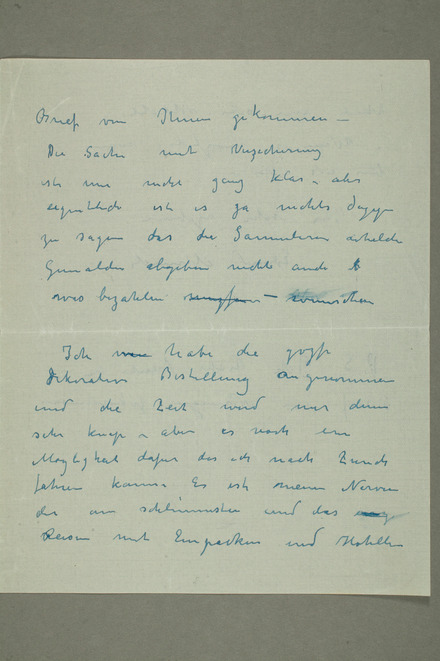 Brief von Ihnen gekommen —
Die Sache mit Versicherung
ist mir nicht ganz klar – aber
eigentlich ist es ja nichts dagegen
zu sagen das die
Gemälde abgeben nichts
was bezahlen
Ich habe die große
Dekorative Bestellung angenommen
und die Zeit wird mir dann
sehr knap – aber es noch ein
Moglighkat dafur das ich nach Zürich
fahren kann. Es ist meine Nerven
die am schlimmsten und das
Reisen mit Einpacken und Hotellen